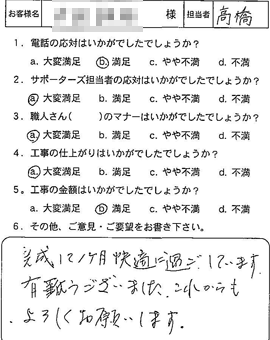 お客様名 様 担当者 高橋
1．電話の応対はいかがでしたでしょうか？
a. 大変満足 b. 満足 c. やや不満 d. 不満
2．サポーターズ担当者の応対はいかがでしたでしょうか？
a. 大変満足 b. 満足 c. やや不満 d. 不満
3．職人さん（ ）のマナーはいかがでしたでしょうか？
a. 大変満足 b. 満足 c. やや不満 d. 不満
4．工事の仕上がりはいかがでしたでしょうか？
a. 大変満足 b. 満足 c. やや不満 d. 不満
5．工事の金額はいかがでしたでしょうか？
a. 大変満足 b. 満足 c. やや不満 d. 不満
6．その他、ご意見・ご要望をお書き下さい。
完成して1ヶ月快適に過ごしています
有難うございました これからも
よろしくお願いします．